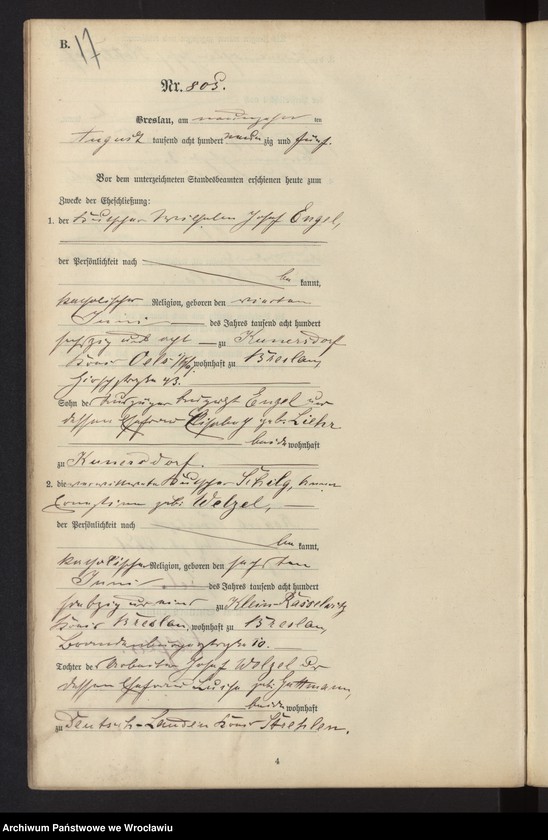 B.
17
Nr. 805.
Breslau, am neunzehnten
August tausend acht hundert neunzig und fünf.
Vor dem unterzeichneten Standesbeamten erschienen heute zum
Zwecke der Eheschließung:
1. der Kutscher Wilhelm Josef Engel,
der Persönlichkeit nach
be kannt,
katholischer Religion, geboren den vierten
Juni des Jahres tausend acht hundert
sechzig und acht zu Kunersdorf
Kreis Oels, wohnhaft zu Breslau,
Hirschstraße 43.
Sohn des Engel und
dessen Ehefrau Elisabeth geb. Liehr
beide wohnhaft
zu Kunersdorf.
2. die verwittwete Kutscher Schilg,
Ernestine geb. Welzel,
der Persönlichkeit nach
be kannt,
katholischer Religion, geboren den sechsten
Juni des Jahres tausend acht hundert
siebzig und eins zu Klein-Rasselwitz
Kreis Breslau, wohnhaft zu Breslau,
Brandenburgerstraße 10.
Tochter des Arbeiters Josef Welzel und
dessen Ehefrau Luise geb. Guttmann,
beide wohnhaft
zu Deutsch-Lauden Kreis Strehlen.
4
Archiwum Państwowe we Wrocławiu